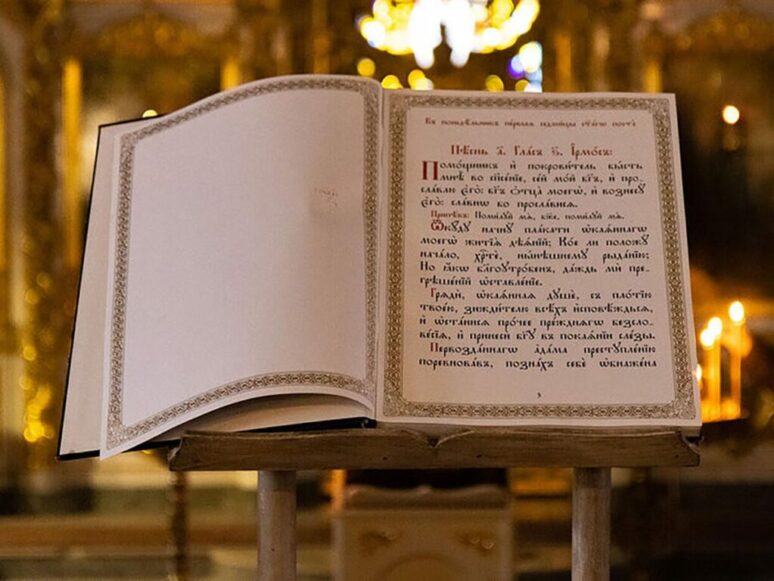 Въ понедѣльникъ первыя седмицы ст҃агѡ поста̀
Пѣ́снь а҃. Гла́съ ѕ҃. І҆рмо́съ:
Помо́щникъ и҆ покрови́тель бы́сть
мнѣ̀ во спⷭ҇е́нїе, се́й мо́й бг҃ъ, и҆ про-
сла́влю є҆го̀: бг҃ъ ѻ҆тца̀ моегѡ̀, и҆ вознесꙋ̀
є҆го̀: сла́внѡ бо просла́висѧ.
Припѣ́въ: Поми́лꙋй мѧ̀, бж҃е, поми́лꙋй мѧ̀.
Ѿкꙋ́дꙋ начнꙋ̀ пла́кати ѡ҆каѧ́ннагѡ
моегѡ̀ житїѧ̀ дѣѧ́нїй; Ко́е ли положꙋ̀
нача́ло, хрⷭ҇тѐ, ны́нѣшнемꙋ рыда́нїю;
Но ꙗ҆́кѡ бл҃гоꙋтро́бенъ, да́ждь мѝ пре-
грѣше́нїй ѡ҆ставле́нїе.
Грѧдѝ, ѡ҆каѧ́ннаѧ дꙋшѐ, съ пло́тїю
твое́ю, зижди́телю всѣ́хъ и҆сповѣ́ждьсѧ,
и҆ ѡ҆ста́нисѧ про́чее пре́жднѧгѡ безсло-
ве́сїѧ, и҆ принесѝ бг҃ꙋ въ покаѧ́нїи сле́зы.
Первозда́ннаго а҆да́ма престꙋпле́нїю
поревнова́въ, позна́хъ себѐ ѡ҆бнаже́на